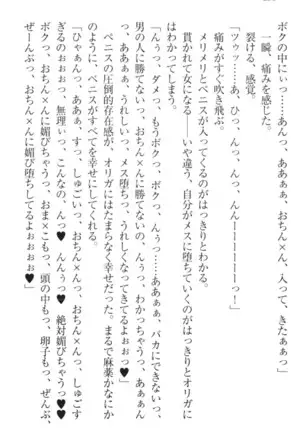 ボクの中にぃ……あんっ、ああぁっ、おちん×ん、入って、きたぁ」
一瞬、痛みを感じた。
裂ける、感覚。
「ツゥッ……あ、ひっ、んっ、んんーーーーーっ！」
痛みがすぐ吹き飛ぶ。
メリメリとペニスが入ってくるのがはっきりとわかる。
貫かれて女になる――いや違う、自分がメスに堕ちていくのがはっきりとオリガ
にはわかってしまう。
「んぅっ、ダメっ、もうボクっ、ボクっ、んぅっ……ああぁぁ、バカにできないっ、
男の人に勝てないっ、おちん×んに勝てないの、んぅっ、わかっちゃうっ、あぁぁん
っ、あああぁ、うれしいっ、メス堕ちっ、うれしくなってきてるよぉぉぉっ♥」
ペニスの圧倒的存在感が、オリガにはたまらなく幸せだった。まるで麻薬かなにか
のように、ペニスがすべてを幸せにしてくれる。
「ひゃぁんっ、ああぁ、すっ、しゅごいっ、おちん×んっ、おちん×んっ、しゅごす
ぎるのぉぉぉっ、無理ぃっ、こんなの、んっ♥ んんぅっ♥ 絶対媚びちゃうっ♥
ボクっ、おちん×んに媚びちゃうっ、おま×こもっ、頭の中もっ、卵子もっ、ぜんぶ、
ぜーんぶっ、おちん×んに媚び堕ちしてるよぉぉぉっ♥」